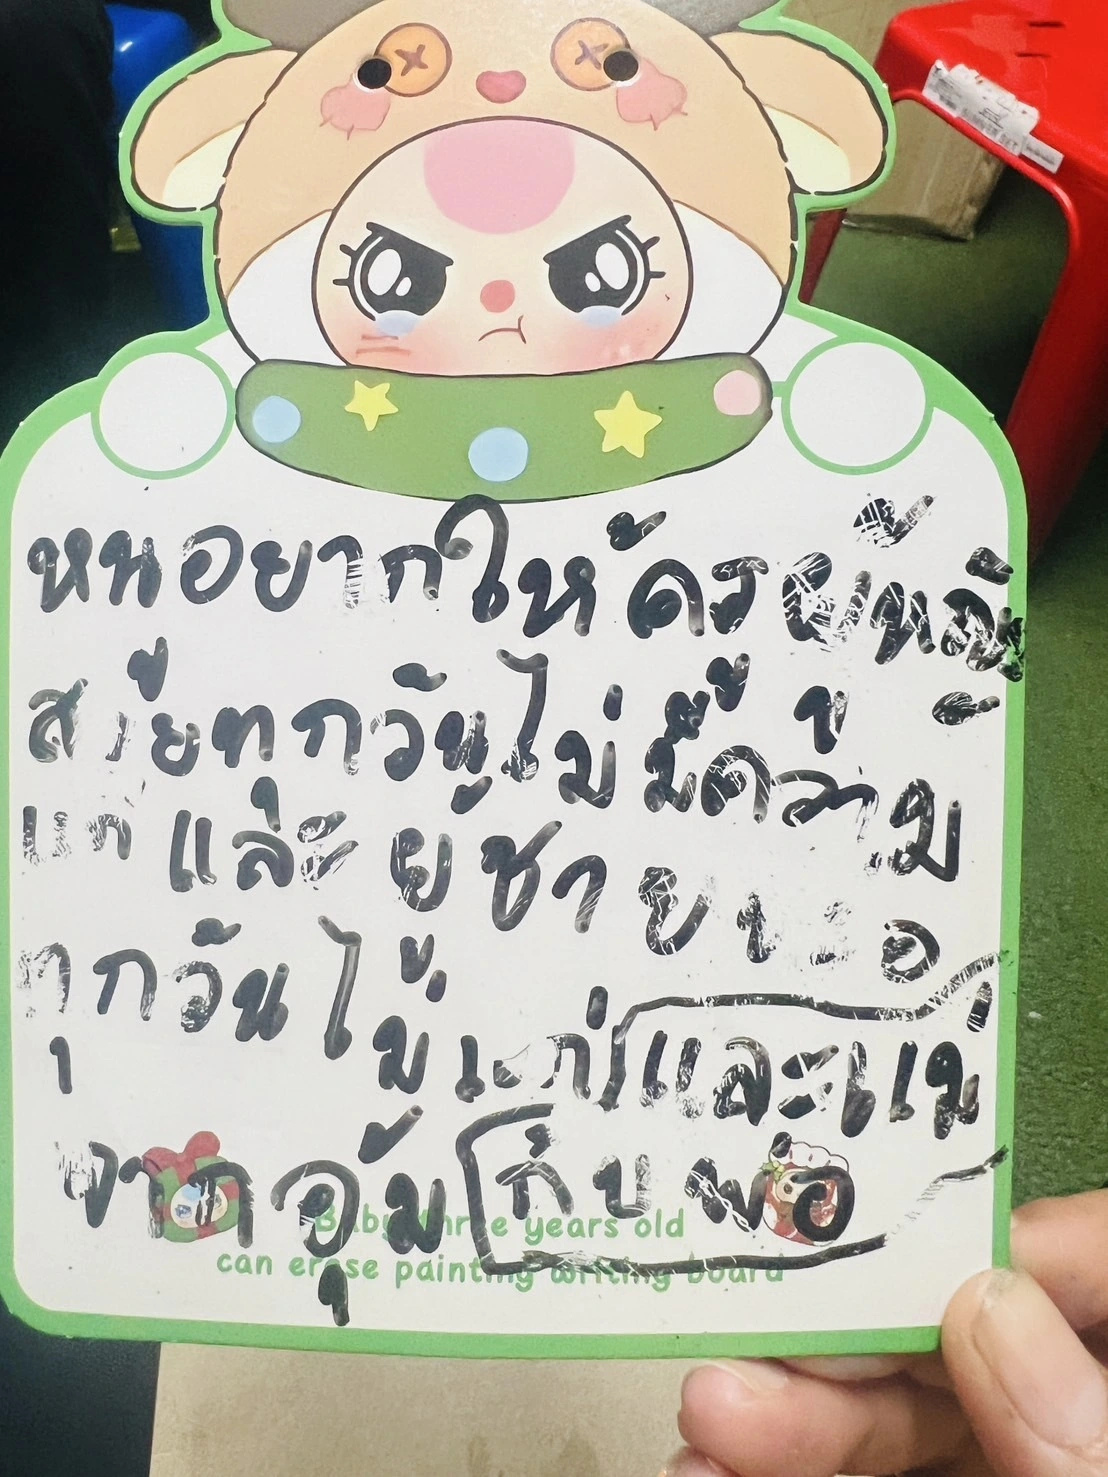 หนอยากให้ครผู้หญิ
สวยทุกวันไม่มีความ
แก่ และ ผู้ชาย
ทุกวันไม่แก่ และแม่
จากอุ้ม กับ พ่อ
Baby three years old
can erase painting writing board